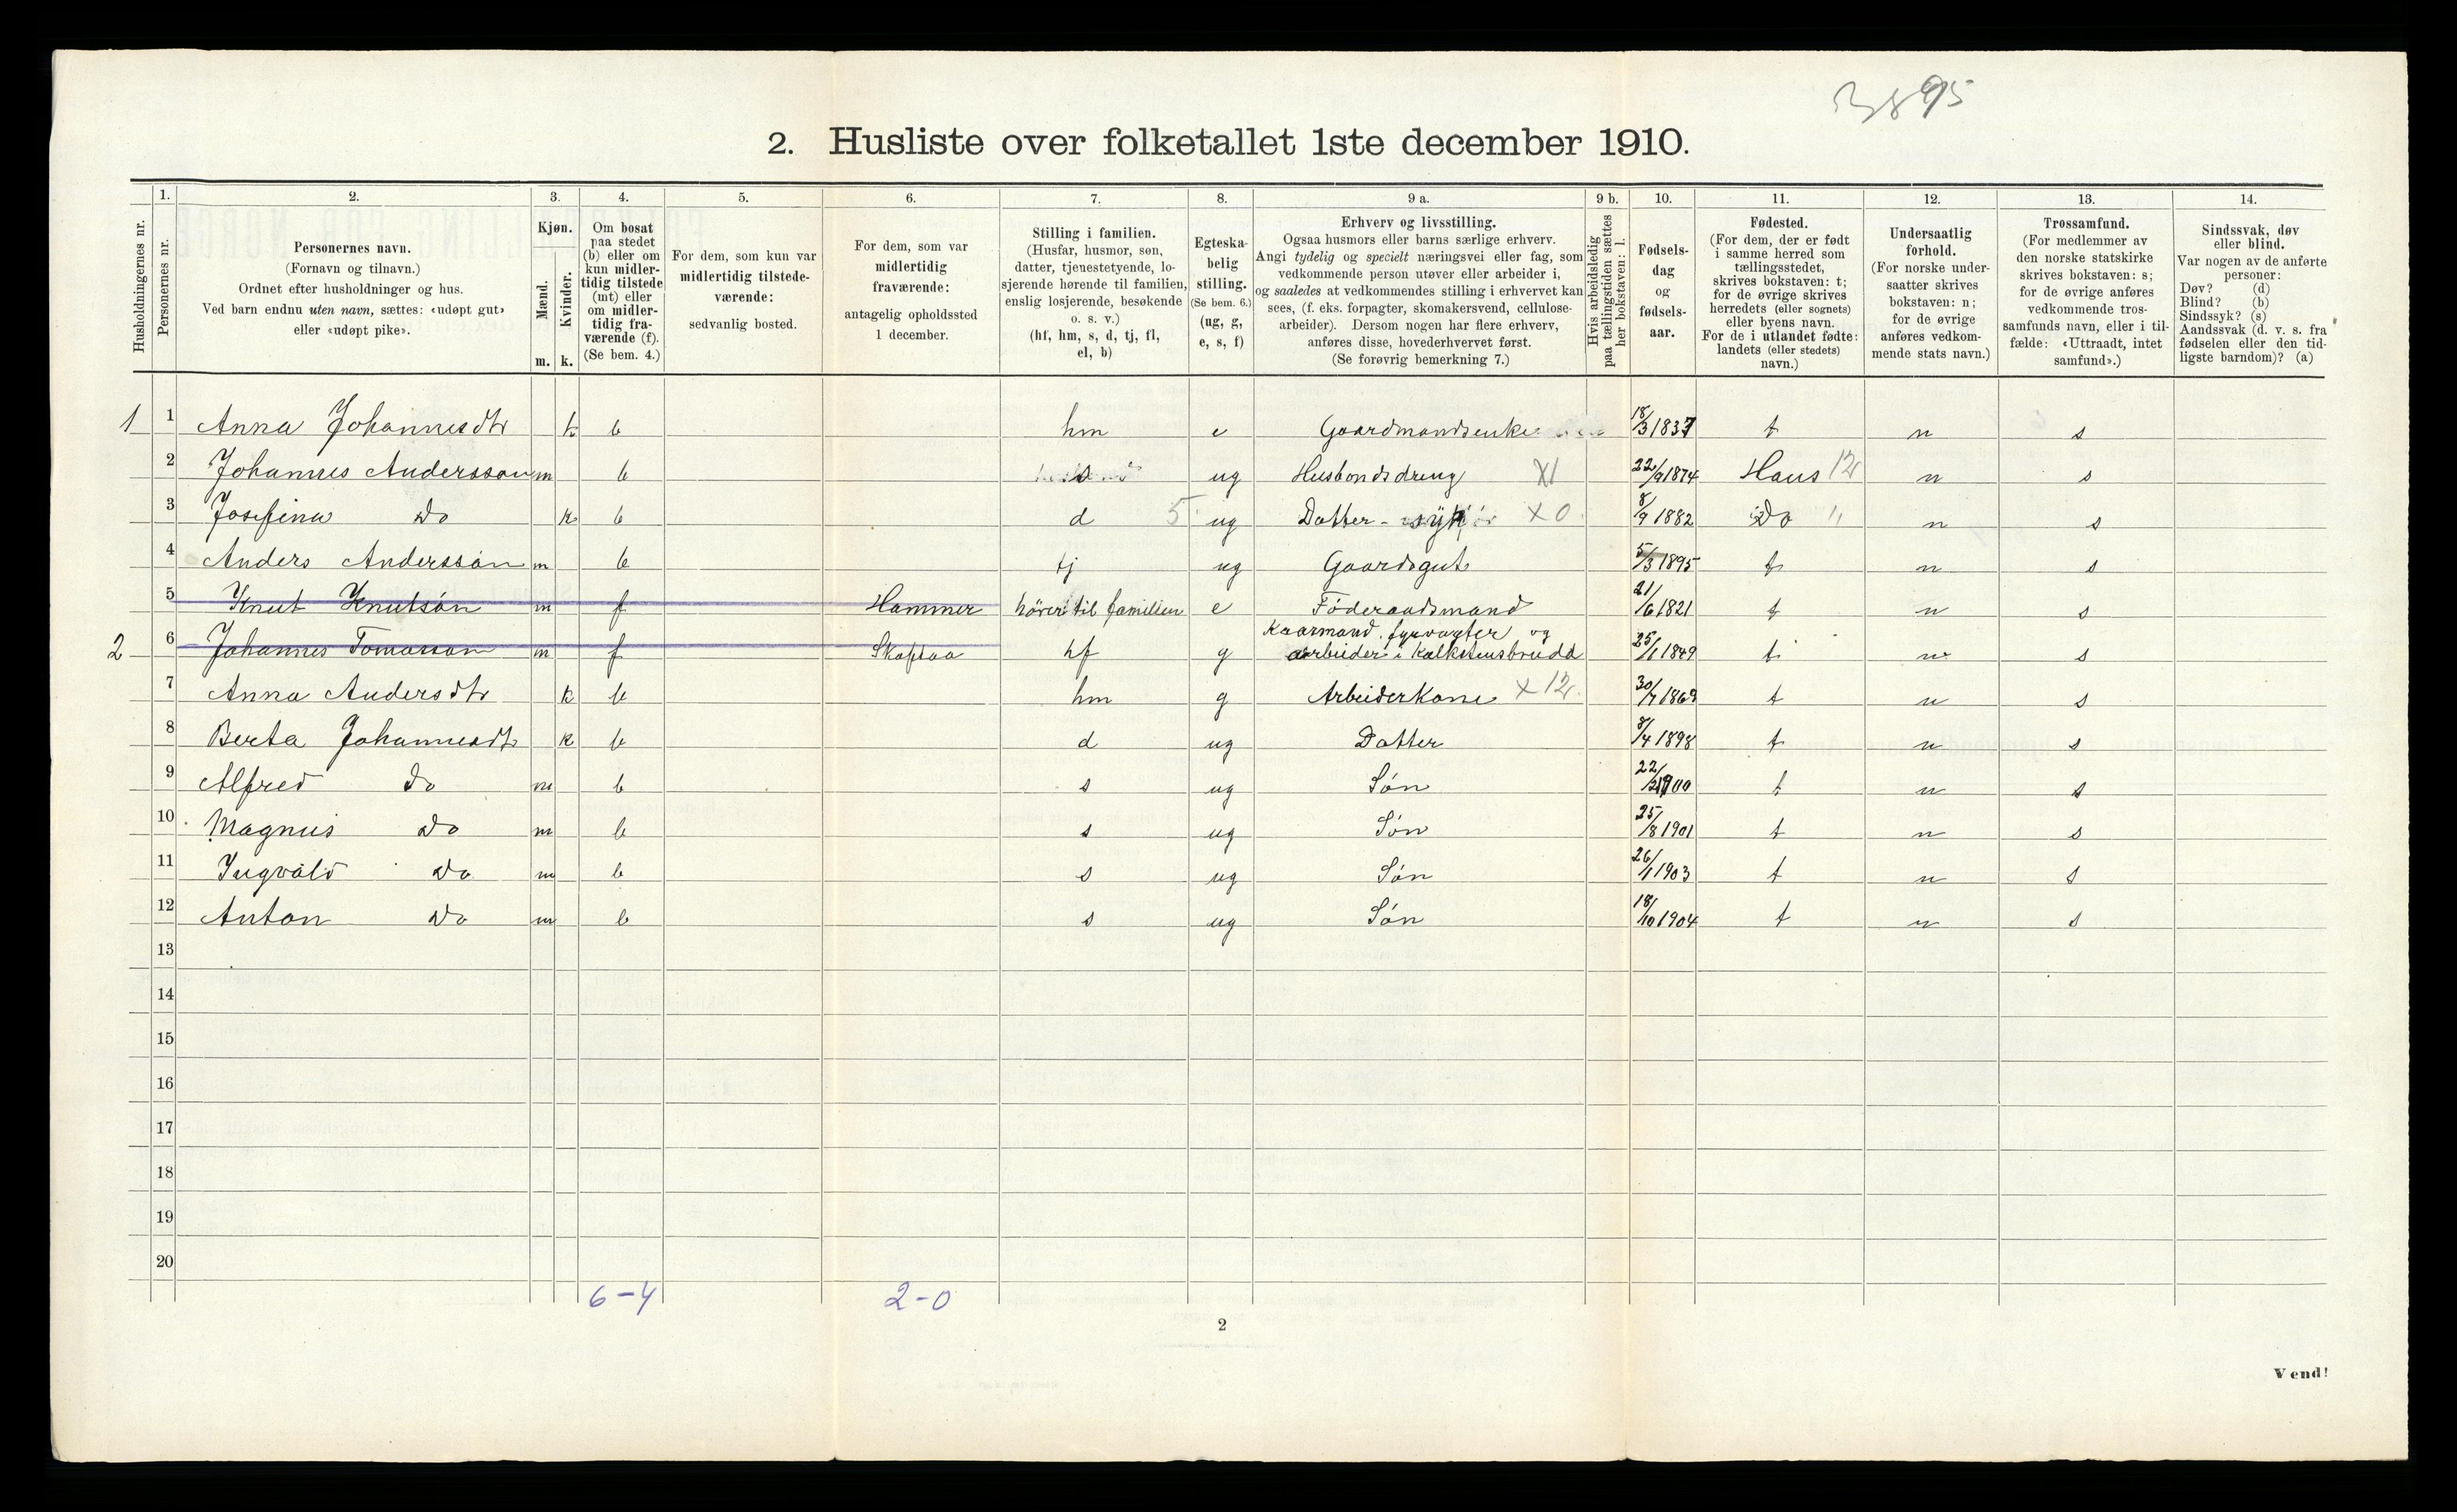 3895
2. Husliste over folketallet 1ste december 1910.
Husholdningernes nr.
1. Personernes nr.
2. Personernes navn. (Fornavn og tilnavn.) Ordnet efter husholdninger og hus. Ved barn endnu uten navn, sættes: «udøpt gut» eller «udøpt pike».
3. Kjøn. Mænd. m. Kvinder. k.
4. Om bosat paa stedet (b) eller om kun midlertidig tilstede (mt) eller om midlertidig fraværende (f). (Se bem. 4.)
5. For dem, som kun var midlertidig tilstedeværende: sedvanlig bosted.
6. For dem, som var midlertidig fraværende: antagelig opholdssted 1 december.
7. Stilling i familien. (Husfar, husmor, søn, datter, tjenestetyende, losjerende hørende til familien, enslig losjerende, besøkende o. s. v.) (hf, hm, s, d, tj, fl, el, b)
8. Egteskabelig stilling. (Se bem. 6.) (ug, g, e, s, f)
9 a. Erhverv og livsstilling. Ogsaa husmors eller barns særlige erhverv. Angi tydelig og specielt næringsvei eller fag, som vedkommende person utøver eller arbeider i, og saaledes at vedkommendes stilling i erhvervet kan sees, (f. eks. forpagter, skomakersvend, cellulosearbeider). Dersom nogen har flere erhverv, anføres disse, hovederhvervet først. (Se forøvrig bemerkning 7.)
9 b. Hvis arbeidsledig paa tællingstiden sættes her bokstaven: l.
10. Fødselsdag og fødselsaar.
11. Fødested. (For dem, der er født i samme herred som tællingsstedet, skrives bokstaven: t; for de øvrige skrives herredets (eller sognets) eller byens navn. For de i utlandet fødte: landets (eller stedets) navn.)
12. Undersaatlig forhold. (For norske undersaatter skrives bokstaven: n; for de øvrige anføres vedkommende stats navn.)
13. Trossamfund. (For medlemmer av den norske statskirke skrives bokstaven: s; for de øvrige anføres vedkommende trossamfunds navn, eller i tilfælde: «Uttraadt, intet samfund».)
14. Sindssvak, døv eller blind. Var nogen av de anførte personer: Døv? (d) Blind? (b) Sindssyk? (s) Aandssvak (d. v. s. fra fødselen eller den tidligste barndom)? (a)
1 1 Anna Johannesdtr k b hm e Gaardmandsenke 18/3 1837 t n s
2 Johannes Anderssøn m b s ug Husbondsdreng X1 22/9 1874 Haus 12 n s
3 Josefina Do k b d 5 ug Datter - X0 8/9 1882 Do " n s
4 Anders Anderssøn m b tj ug Gaardsgut 5/3 1895 t n s
5 Knut Knutsøn m f Hammer hörer til familien e Föderaadsmand 21/6 1821 t n s
2 6 Johannes Tomassøn m f Skaftaa hf g Kaarmand. fyrvagter og arbeider i Kalkstensbrudd 25/1 1849 t n s
7 Anna Andersdtr k b hm g Arbeiderkone X 12 30/7 1869 t n s
8 Berta Johannesdtr k b d ug Datter 8/4 1898 t n s
9 Alfred Do m b s ug Søn 22/2 1900 t n s
10 Magnus Do m b s ug Søn 25/8 1901 t n s
11 Ingvald Do m b s ug Søn 26/1 1903 t n s
12 Anton Do m b s ug Søn 18/10 1904 t n s
13
14
15
16
17
18
19
20
6-4 2-0
2
Vend!